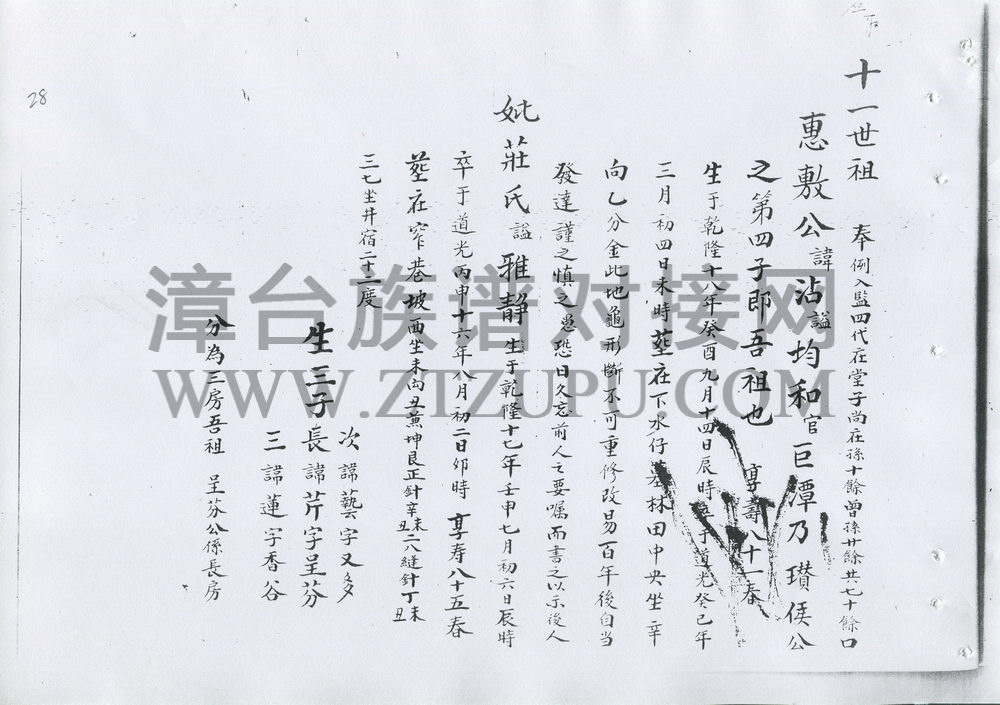 十一世祖 奉例入監四代在堂子尚在孫十餘曾孫廿餘共七十餘口
惠敷公諱沾謚均和官巨潭乃瓚侯公
之第四子即吾祖也 享壽八十一春
生于乾隆十八年癸酉九月十四日辰時 于道光癸巳年
三月初四日未時葬在下水仔 林田中央坐辛
向乙分金此地龜形斷不可重修改易百年後自當
發達謹之慎之愚恐日久忘前人之要嘱而書之以示後人
妣莊氏謚雅静生于乾隆十七年壬申七月初六日辰時
卒于道光丙申十六年八月初二日卯時 享寿八十五春
葬在窄巷坡西坐未向丑兼坤艮正針辛未辛丑八縫針丁未丁丑
三七坐井宿二十二度
生三子長諱芹字呈芬
次諱藝字又多
三諱蓮字香谷
分為三房吾祖 呈芬公係長房
28
漳台族谱对接网
WWW.ZTZUPU.COM